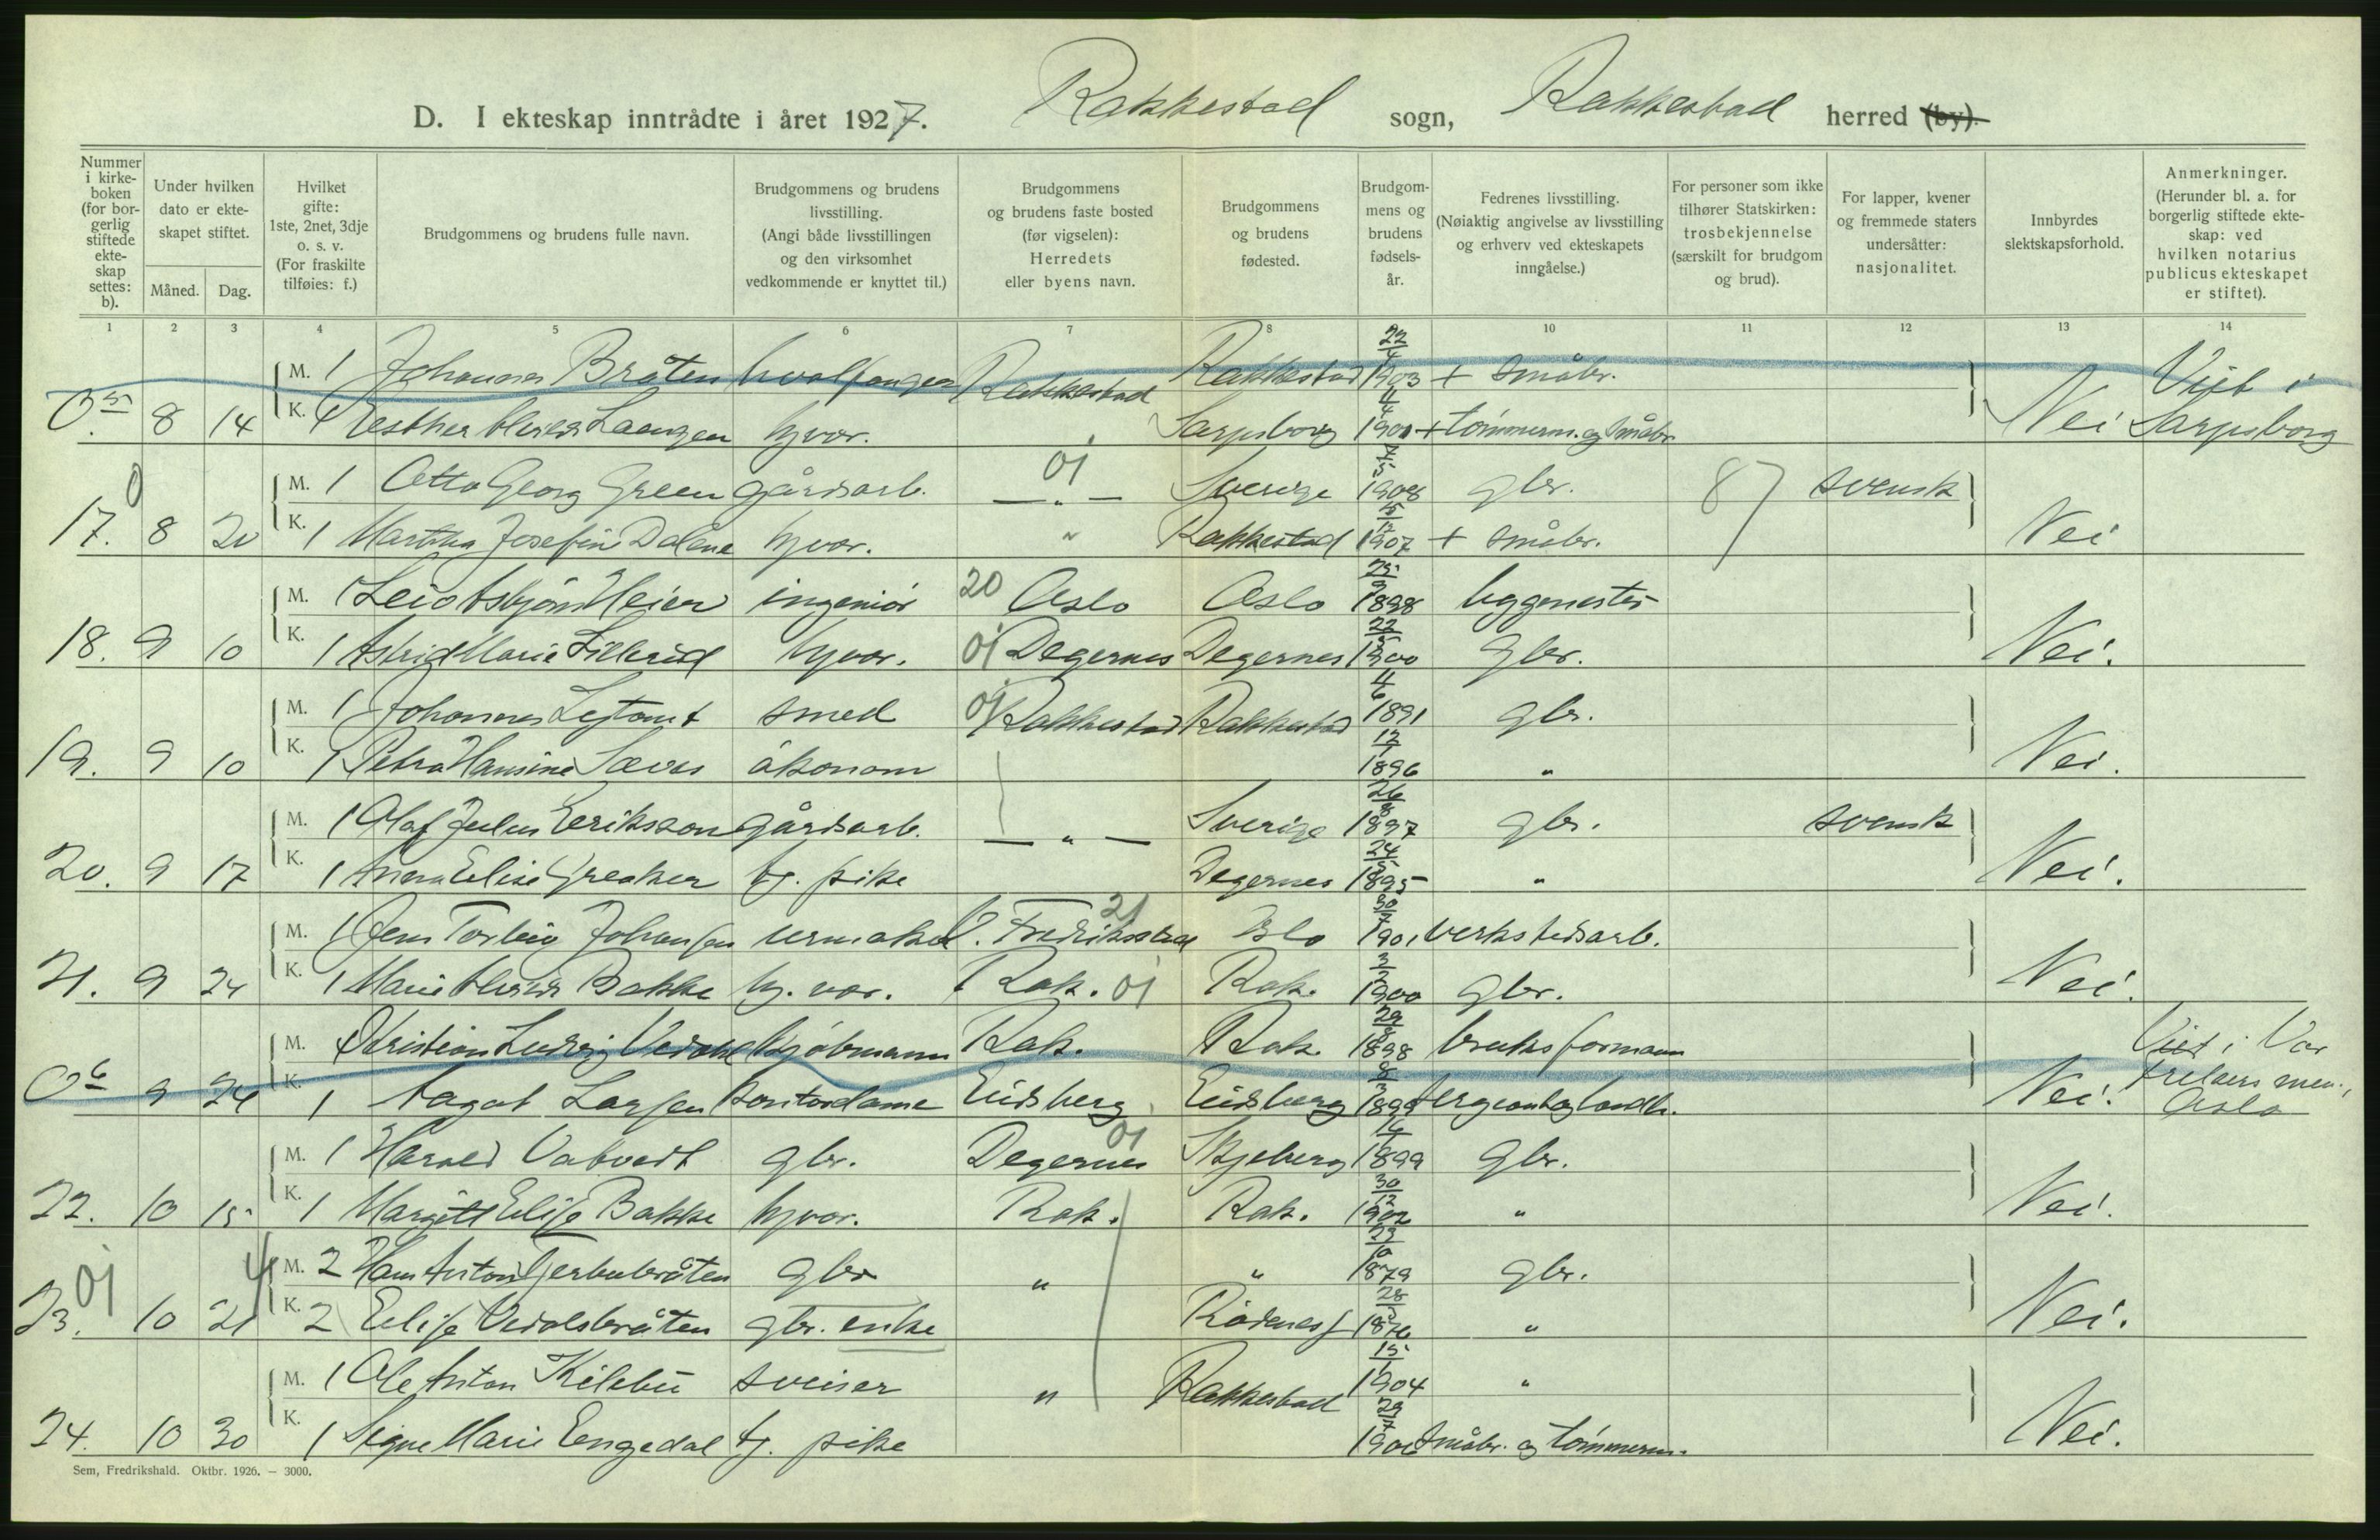 D. I ekteskap inntrådte i året 1927. Rakkestad sogn, Rakkestad herred (by).
Nummer i kirkeboken (for borgerlig stiftede ekteskap settes: b).
Under hvilken dato er ekteskapet stiftet.
Måned. Dag.
Hvilket gifte: 1ste, 2net, 3dje o. s. v. (For fraskilte tilføies: f.)
Brudgommens og brudens fulle navn.
Brudgommens og brudens livsstilling. (Angi både livsstillingen og den virksomhet vedkommende er knyttet til.)
Brudgommens og brudens faste bosted (før vigselen): Herredets eller byens navn.
Brudgommens og brudens fødested.
Brudgommens og brudens fødselsår.
Fedrenes livsstilling. (Nøiaktig angivelse av livsstilling og erhverv ved ekteskapets inngåelse.)
For personer som ikke tilhører Statskirken: trosbekjennelse (særskilt for brudgom og brud).
For lapper, kvener og fremmede staters undersåtter: nasjonalitet.
Innbyrdes slektskapsforhold.
Anmerkninger. (Herunder bl. a. for borgerlig stiftede ekteskap: ved hvilken notarius publicus ekteskapet er stiftet).
1 2 3 4 5 6 7 8 9 10 11 12 13 14
M. 1 Johannes Bråten hvalfanger Rakkestad Rakkestad 22/4 1903 + småbr. Viet i
8 14 K. 1 Esther Laangen hjvor. Sarpsborg + tømmerm. og småbr. Nei Sarpsborg
0 M. 1 Otto Georg Green gårdsarb. 01 — " — Sverige 1908 gbr. 87 svensk
17. 8 20 K. 1 Martha Josefine Dalene hjvor. " Rakkestad 1907 + småbr. Nei
M. 1 Leif Asbjørn Heier ingeniør 20 Oslo Oslo 1898 byggmester
18. 9 10 K. 1 Astrid Marie Lillerud hjvor. 01 Degernes Degernes 1900 gbr. Nei.
M. 1 Johannes smed 01 Rakkestad Rakkestad 4/6 1891 gbr.
19. 9 10 K. 1 Petra Hansine økonom 1896 " Nei.
M. 1 Olaf Julius Eriksson gårdsarb. — " — Sverige 26/8 1897 gbr. svensk
20. 9 17 K. 1 Anna Elise Greaker tj. pike Degernes 1895 " Nei.
M. 1 Jens Torleiv Johansen urmaker 21 Fredrikstad Oslo 1901 verkstedsarb.
21. 9 24 K. 1 Marie Bakke hj. vor. Rak. 01 Rak. 1900 gbr. Nei.
M. Kristian Ludvig kjøbmann Rak. Rak. 29/8 1898 bruksformann Viet i Vår
9 24 K. 1 Aagot Larsen kontordame Eidsberg Eidsberg 1899 sergeant og landh. Nei. frelsers men., Oslo
M. 1 Harald Vatvedt gbr. Degernes 01 Skjeberg 1899 gbr.
22. 10 15 K. 1 Margitt Elise Bakke hjvor. Rak. Rak. 30/12 1902 " Nei.
4 M. 2 Hans Anton gbr " " 1879 gbr.
01 23. 10 21 K. 2 Elise gbr. enke Rødenes 1876 " Nei.
M. 1 Ole Anton Kilebu sveiser " Rakkestad 15/1 1904 "
24. 10 30 K. 1 Signe Marie Engedal tj. pike 29/7 småbr. og tømmerm. Nei.
Sem, Fredrikshald. Oktbr. 1926. — 3000.